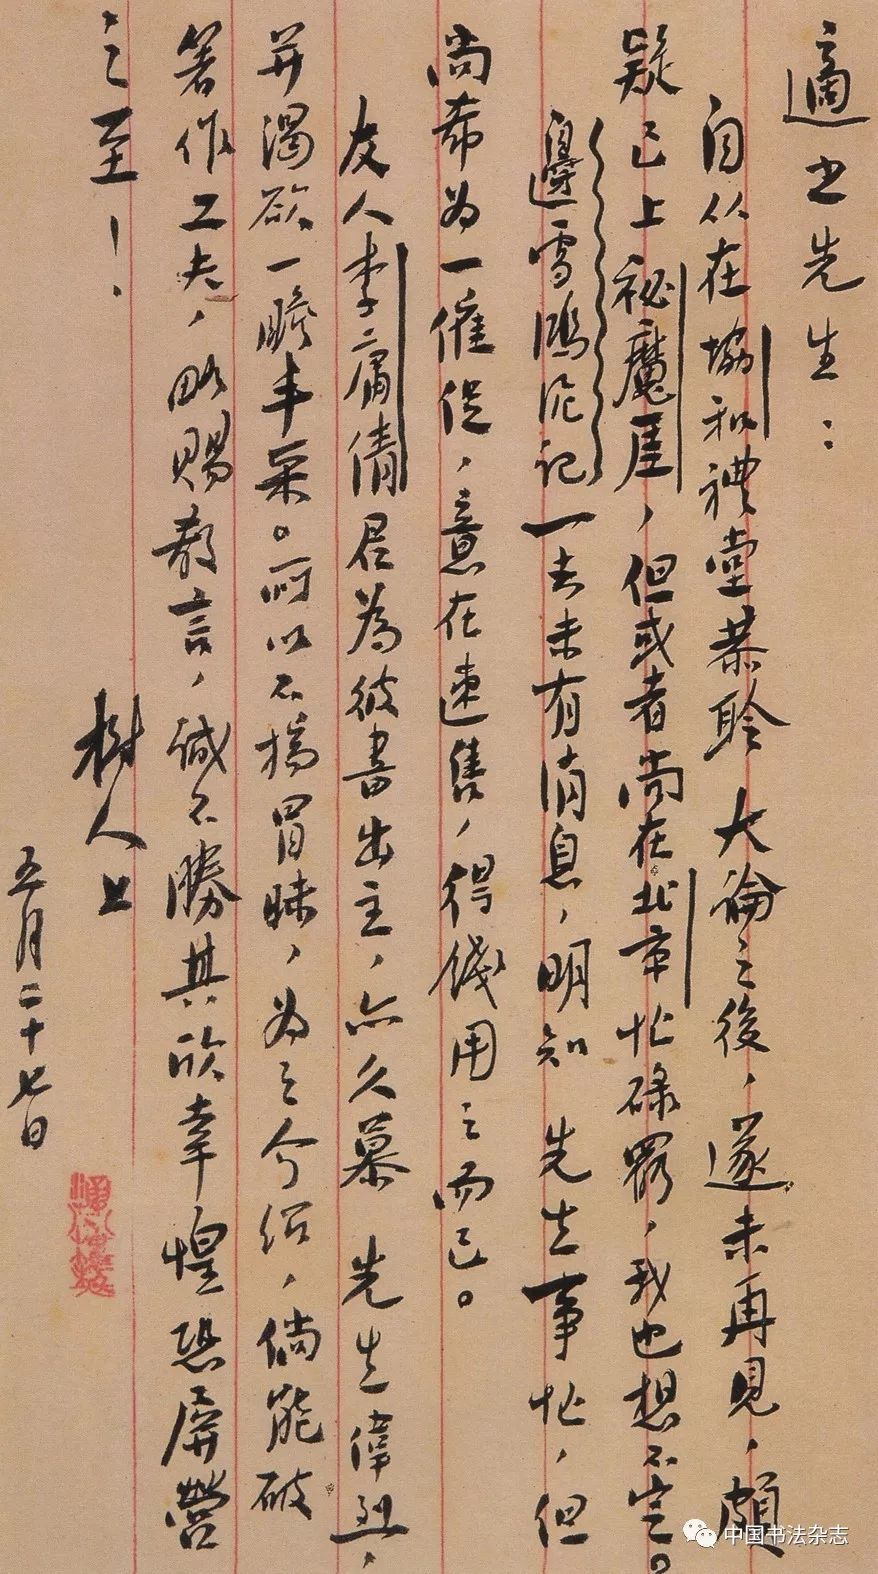 適之先生：
自从在協和禮堂恭聆　大論之後，遂未再見，頗
疑已上祕魔厓，但或者尚在北京忙碌罷，我也想不定。
邊雪鴻泥记一去未有消息，明知　先生事忙，但
尚希为一催促，意在速售，得錢用之而已。
友人李庸倩君為彼書出主，亦久慕　先生偉烈，
并渴欲一瞻丰采。所以不揣冒昧，为之介绍，倘能破
著作工夫，略賜教言，誠不勝其欣幸惶恐屏營
之至！
樹人上
五月二十七日
中国书法杂志